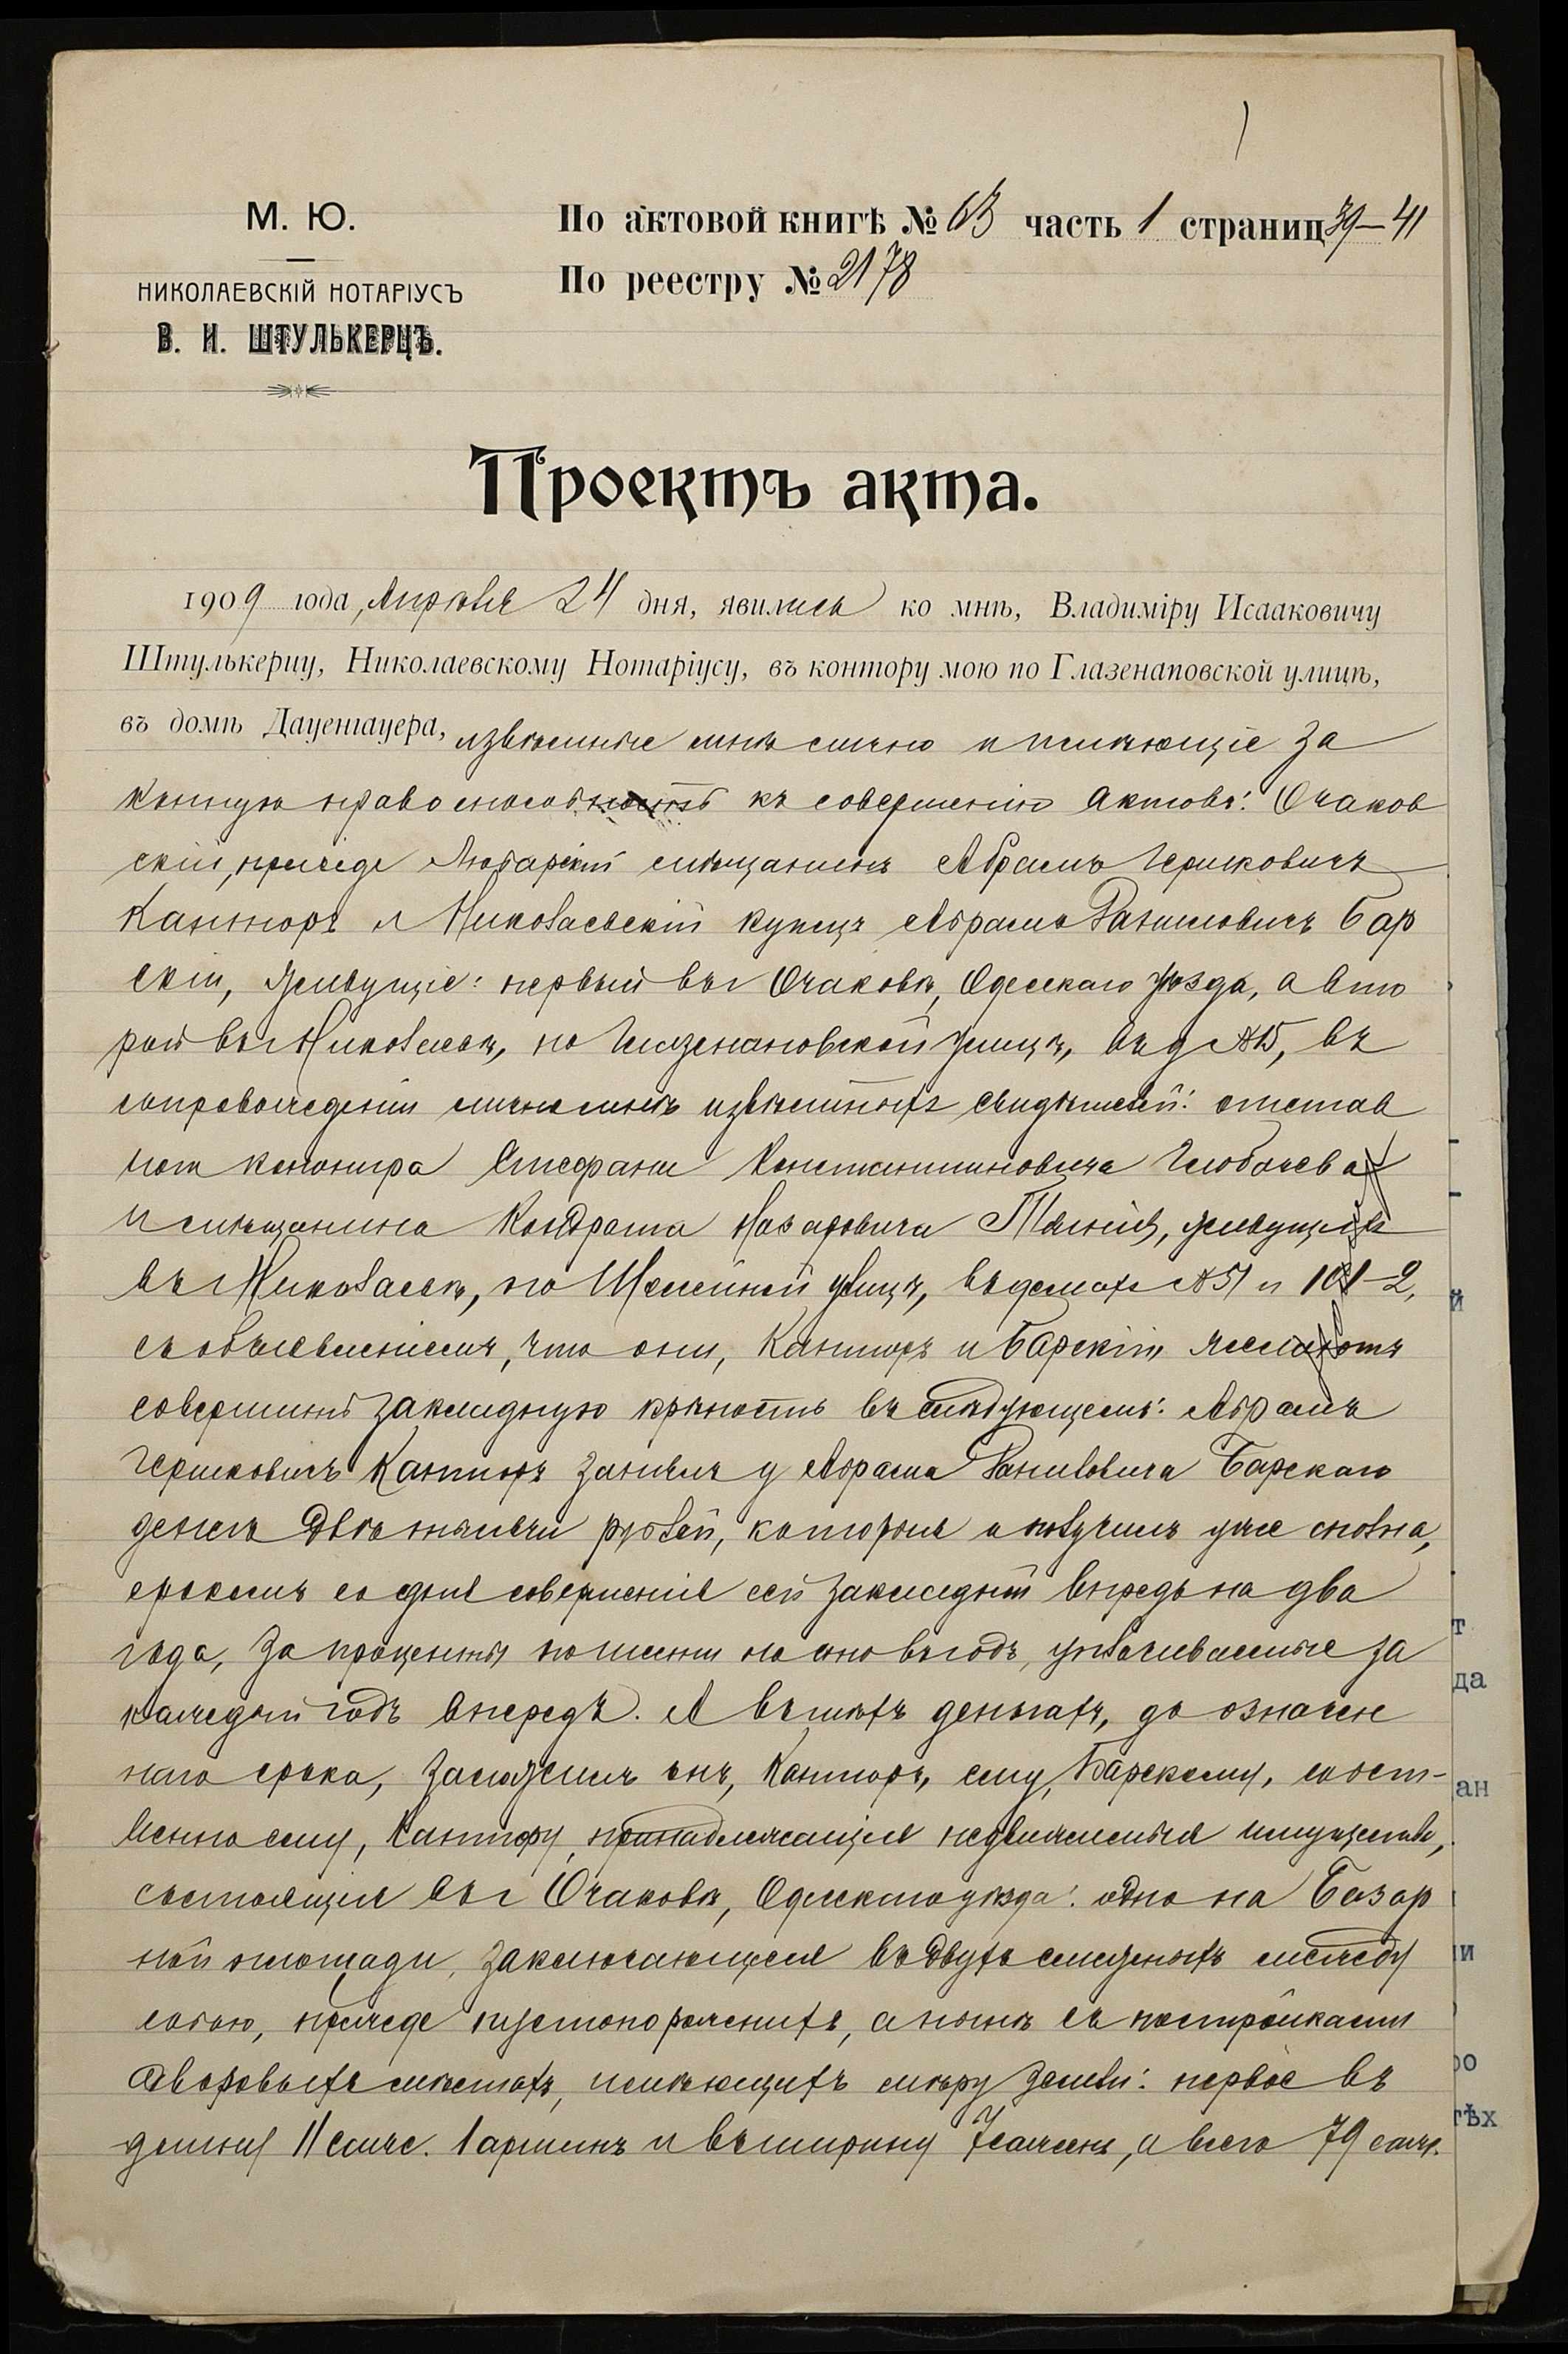 М. Ю.
НИКОЛАЕВСКІЙ НОТАРІУСЪ
В. И. ШТУЛЬКЕРЦЪ.
По актовой книгѣ № 63 часть 1 страниц 39–41
По реестру № 2178
Проектъ акта.
1909 года, Апрѣля 24 дня, явились ко мнѣ, Владиміру Исааковичу
Штулькерцу, Николаевскому Нотаріусу, въ контору мою по Глазенаповской улицѣ,
въ домѣ Дауенгауера, извѣстные мнѣ лично и имѣющіе за
конную правоспособность къ совершенію актовъ: Очаков
скій, прежде Любарскій мѣщанинъ Абрамъ Гершковичъ
Канторъ и Николаевскій купецъ Абрамъ Рахмиловичъ Бар
скій, живущіе: первый въ г Очаковѣ, Одесскаго уѣзда, а вто
рой въ г Николаевѣ, по Глазенаповской улицѣ, въ д №15, въ
сопровожденіи лично мнѣ извѣстныхъ свидѣтелей: отстав
ного канонира Стефана Константиновича
и мѣщанина Кондрата Назаровича живущихъ
въ г Николаевѣ, по улицѣ, въ домахъ №51 и 101–2,
съ объявленіемъ, что они, Канторъ и Барскій, желаютъ
совершить закладную крѣпость въ слѣдующемъ: Абрамъ
Гершковичъ Канторъ занялъ у Абрама Рахмиловича Барскаго
денегъ двѣ тысячи рублей, которые и получилъ уже сполна,
срокомъ со дня совершенія сей закладной впредь на два
года, за проценты по шести на сто въ годъ, уплачиваемые за
каждый годъ впередъ. А въ тѣхъ деньгахъ, до означен
наго срока, заложилъ онъ, Канторъ, ему, Барскому, собст-
венно ему, Кантору, принадлежащія недвижимыя имущества,
состоящія въ г Очаковѣ, Одесскаго уѣзда: одно на Базар
ной площади, заключающееся въ двухъ смежныхъ между
собою, прежде пустопорожнихъ, а нынѣ съ постройками
дворовыхъ мѣстахъ, имѣющихъ мѣру земли: первое въ
длину 11 саж. 1 аршинъ и въ ширину 7 сажень, а всего 79 саж.
й
т
да
ан
и
ро
тѣх